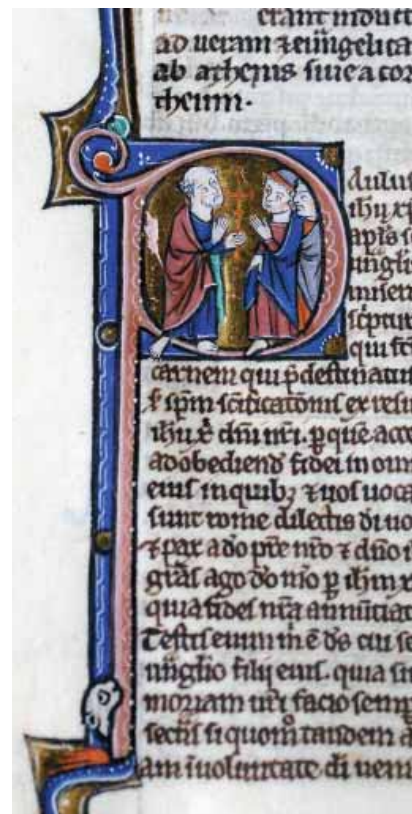 erant inducti
ad ueram ⁊ euu̅gelica
ab athenis sʼibe a cor
theum.
P
aulus
ihu xp̅i
apl̅s
carnem qui p̅destinatus
⁊ sp̅m sc̅ificat̅onis ex resu
ihu x̅ dn̅i nr̅i. p̅ que acce
ad obediend̅ fidei in om
eius in quib; ⁊ uos uoca
sunt rome dilectis di uo
⁊ pax a do pr̅e nr̅o ⁊ dn̅o i
gr̅as ago do mō p̅ ihm x
quia fides nr̅a annūciat
Testis enim m̅ ē ds̅ cui se
filij eius. quia sin
moriam ur̅i facio semp
si quom̅ tandem a
am i uoluntate di ueni